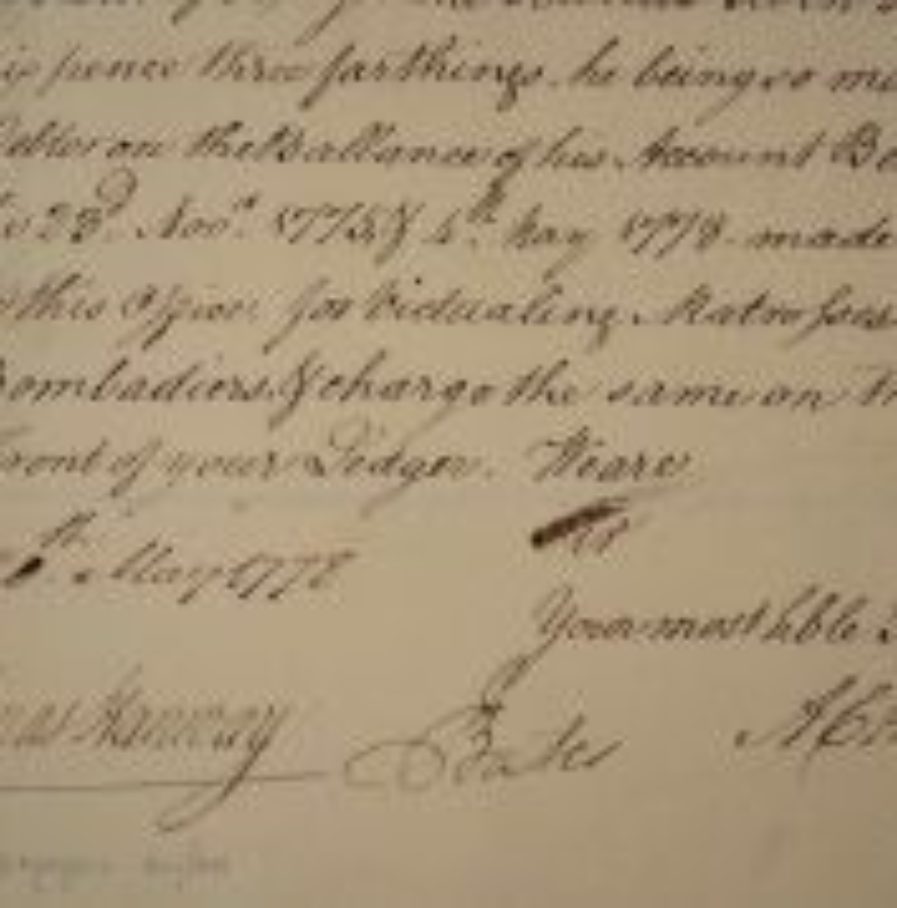 pence three farthings he being so
on the Ballance of his Account
23d. Novr. 1775 & 4th. May 1778 made
this Office for Victualing Matrosses
Bombadiers & charge the same on
Front of your Ledger. We are
Sr
May 1778
Your most hble
Hanway Bates